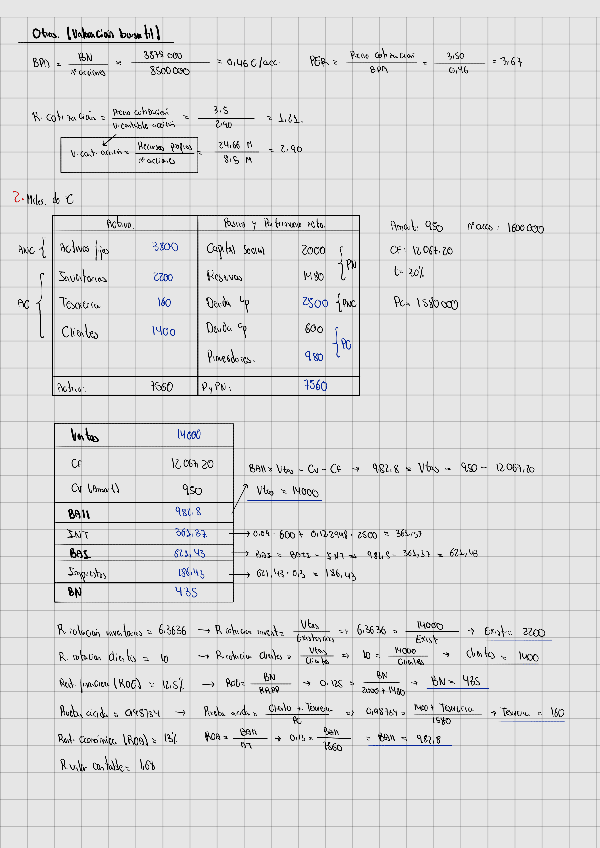 Otros. (Valoración bursátil)
BPA = BN / nº acciones = 3879 000 / 8500 000 = 0,46 €/acc. PER = Precio cotización / BPA = 3,50 / 0,46 = 7,67
R. cotización = Precio cotización / V. contable acción = 3.5 / 2.90 = 1,21.
V. cont. acción = Recursos propios / nº acciones = 24,66 M / 8.5 M = 2.90
2. Miles. de €
Activo. Pasivo y Patrimonio neto.
Amort: 950 nº acc: 1600 000
ANC { Activos fijos 3800 Capital Social 2000 } PN
CF: 12 067.20
AC { Inventarios 2200 Reservas 1480
t = 30%
Tesorería 160 Deuda Lp 2500 } PNC
PC = 1580 000
Clientes 1400 Deuda cp 600 } PC
Proveedores. 980
Activo: 7560 P y PN: 7560
Ventas 14000
CF 12 067.20
BAII = Vtas - Cv - CF → 982.8 = Vtas - 950 - 12 067,20
CV (Amort) 950
Vtas = 14000
BAII 982.8
INT 361,37 → 0.09 · 600 + 0.122948 · 2500 = 361,37
BAI 621,43 → BAI = BAII - INT = 982.8 - 361,37 = 621,43
Impuestos 186,43 → 621,43 · 0,3 = 186,43
BN 435
R. rotación inventarios = 6,3636 → R. rotación invent = Vtas / Existencias => 6,3636 = 14000 / Exist → Exist = 2200
R. rotación clientes = 10 → R. rotación clientes = Vtas / Clientes → 10 = 14000 / Clientes → Clientes = 1400
Rent. financiera (ROE) = 12,5% → ROE = BN / RRPP → 0,125 = BN / 2000 + 1480 → BN = 435
Prueba ácida = 0,98734 → Prueba ácida = Cliente + Tesorería / PC => 0,98734 = 1400 + Tesorería / 1580 → Tesorería = 160
Rent. económica (ROA) = 13% ROA = BAII / AT → 0,13 = BAII / 7560 = BAII = 982,8
R. valor contable = 1,68